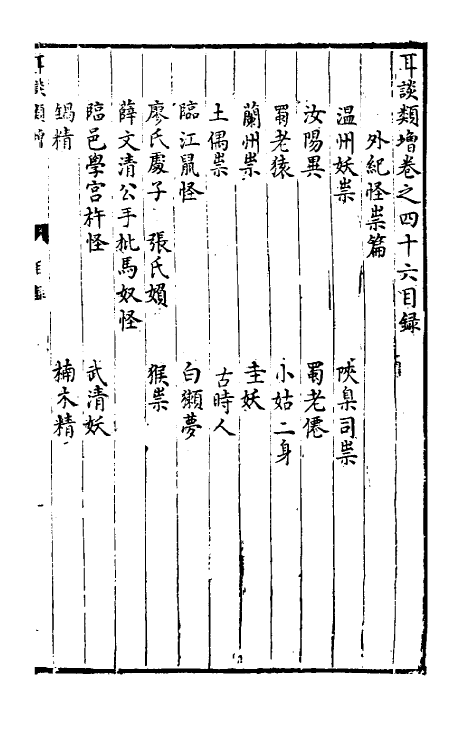 耳談類增卷之四十六目録
外紀怪祟篇
温州妖祟 陜臬司祟
汝陽異 蜀老僊
蜀老猿 小姑二身
蘭州祟 圭妖
土偶祟 古時人
臨江鼠怪 白獺夢
廖氏處子 張氏嬪 猴祟
薛文清公手批馬奴怪
臨邑學宫杵怪 武清妖
鍋精 楠木精
耳談類增 目録